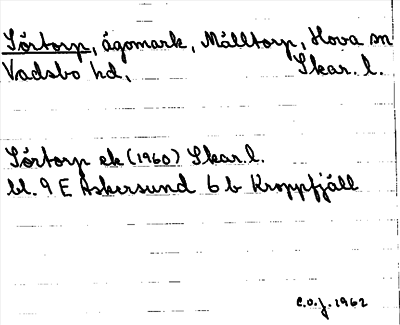 Sörtorp, ägomark, Målltorp, Hova sn
Vadsbo hd, Skar. l.
Sörtorp ek (1960) Skar. l.
bl. 9 E Askersund 6 b Kroppfjäll
C.O.J. 1962